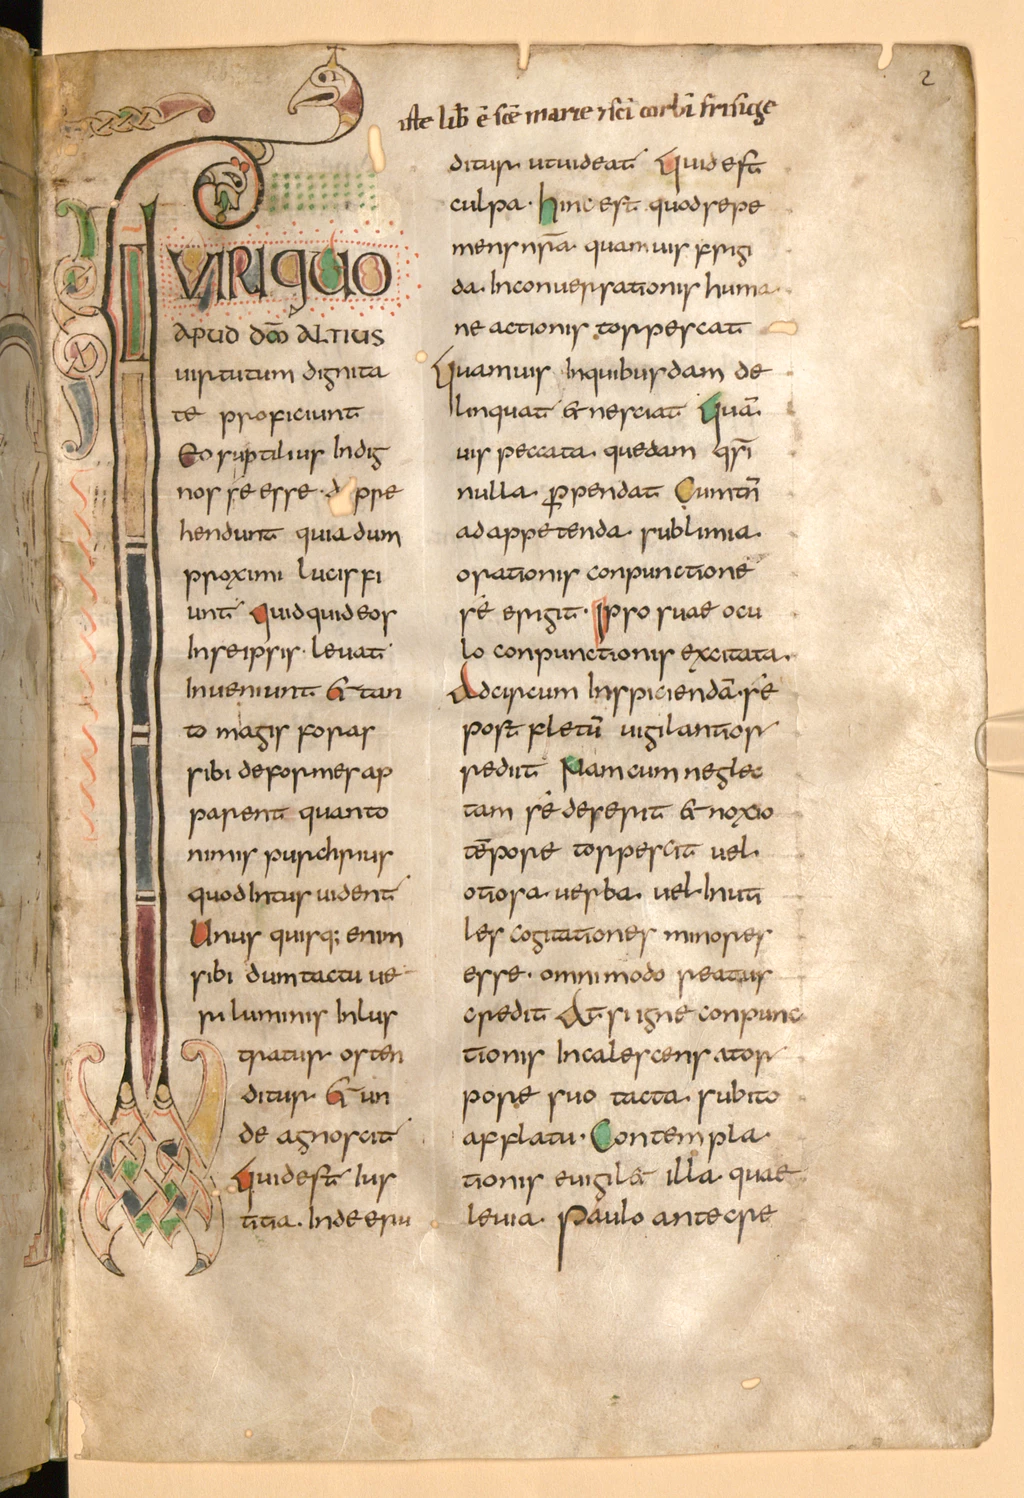 2
iste lib̄ ē scē marie ⁊ sc̄i corbī frisīge
VIRI QUO
APUD DM̄ ALTIUS
uirtutum dignita
te proficiunt
Eo suptilius Indig
nos se esse dep̱pre
hendunt quia dum
proximi lucis fi
unt Quidquid eos
Inseipsis leuat
Inueniunt & tan
to magis foras
sibi deformes ap
parent quanto
nimis purchrius
quod Intus uident
Unus quisq; enim
sibi dum tactu ue
ri luminis Inlus
tratus osten
ditur & un
de agnoscit
Quid est Ius
titia. Inde eru
ditur utuideat Quid est
culpa. hinc est quod sepe
mens nr̄a quamuis frigi
da. Inconuersationis huma
ne actionis torpescat
Quamuis Inquibusdam de
linquat & nesciat Quā
uis peccata. quedam qsī
nulla. ꝑpendat Cumtn̄
ad appetenda. sublimia.
orationis conpunctione
se erigit. Ipso suae ocu
lo conpunctionis excitata.
Adcircum Inspiciendā. se
post fletū uigilantior
rediit Nam cum neglec
tam se deserit & noxio
tēpore torpescit uel
otiosa. uerba. uel Inuti
les cogitationes minores
esse. omnimodo reatus
credit At si igne conpunc
tionis Incalescens ator
pore suo tacta. subito
afflatu. Contempla
tionis euigil& illa. quae
leuia. Paulo antecre